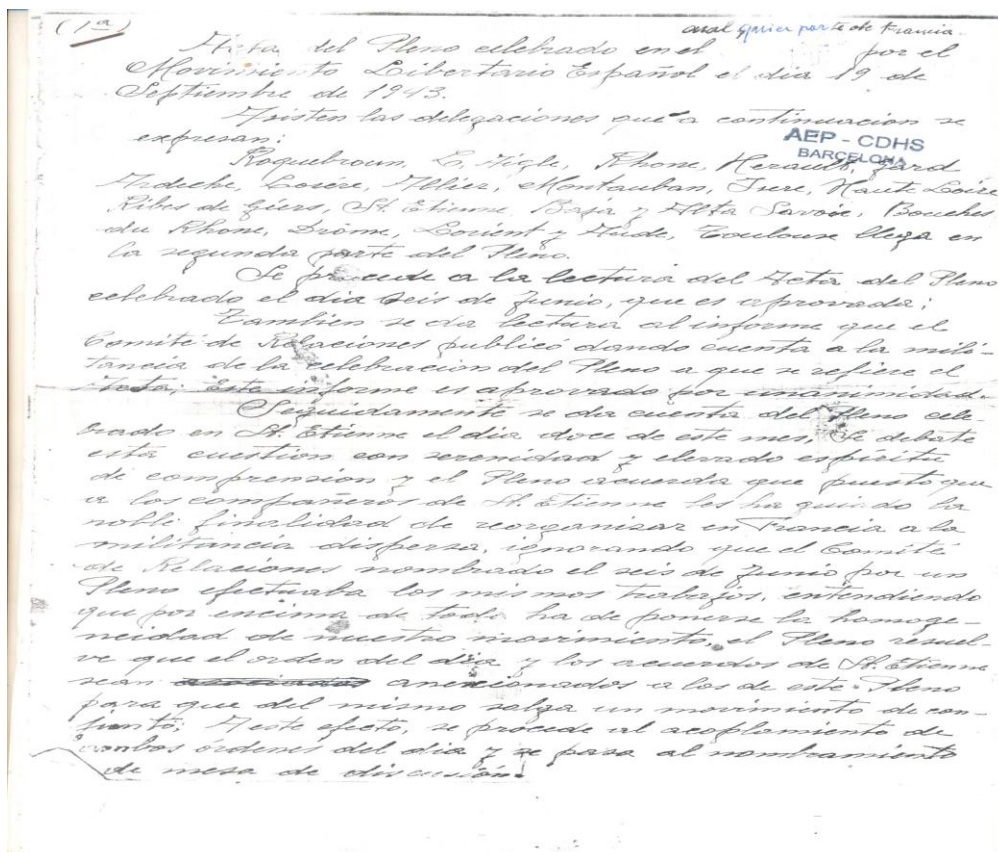 (1ª)
cual quier parte de Francia.
Acta del Pleno celebrado en el por el
Movimiento Libertario Español el dia 19 de
Septiembre de 1943.
Asisten las delegaciones que a continuacion se
expresan:
AEP - CDHS
BARCELONA
Roquebroun, L. Aigle, Rhone, Herault, Gard
Ardeche, Losére, Allier, Montauban, Isere, Haute Loire
Ribes de Giers, St. Etienne, Baja y Alta Savoie, Bouches
du Rhone, Drôme, Lorient y Aude, Toulouse llega en
la segunda parte del Pleno.
Se procede a la lectura del Acta del Pleno
celebrado el dia seis de Junio, que es aprovada;
Tambien se da lectura al informe que el
Comité de Relaciones publicó dando cuenta a la mili-
tancia de la celebracion del Pleno a que se refiere el
Acta; Este informe es aprovado por unanimidad.
Seguidamente se da cuenta del Pleno cele-
brado en St. Etienne el dia doce de este mes, Se debate
esta cuestion con serenidad y elevado espiritu
de comprension y el Pleno acuerda que puesto que
a los compañeros de St. Etienne les ha guiado la
noble finalidad de reorganisar en Francia a la
militancia dispersa, ignorando que el Comité
de Relaciones nombrado el seis de Junio por un
Pleno efectuaba los mismos trabajos, entendiendo
que por encima de todo ha de ponerse la homoge-
neidad de nuestro movimiento, el Pleno resuel-
ve que el orden del dia y los acuerdos de St. Etienne
sean anexionados a los de este Pleno
para que del mismo salga un movimiento de con-
junto; A este efecto, se procede al acoplamiento de
ambos órdenes del dia y se pasa al nombramiento
de mesa de discusión.